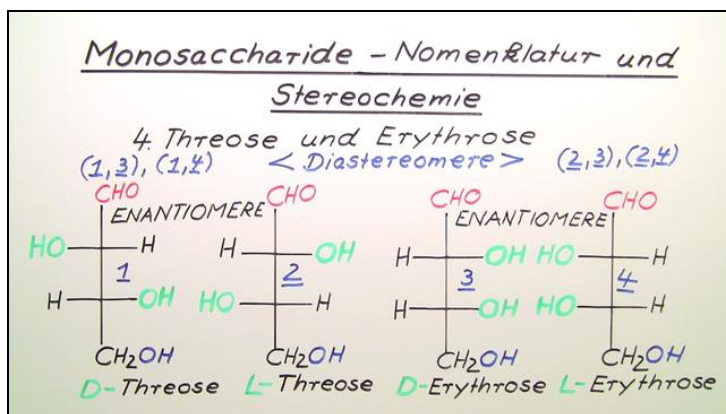 Monosaccharide – Nomenklatur und
Stereochemie
4. Threose und Erythrose
(1,3), (1,4) < Diastereomere > (2,3), (2,4)
CHO CHO CHO CHO
ENANTIOMERE ENANTIOMERE
HO H H OH H OH HO H
1 2 3 4
H OH HO H H OH HO H
CH2OH CH2OH CH2OH CH2OH
D-Threose L-Threose D-Erythrose L-Erythrose